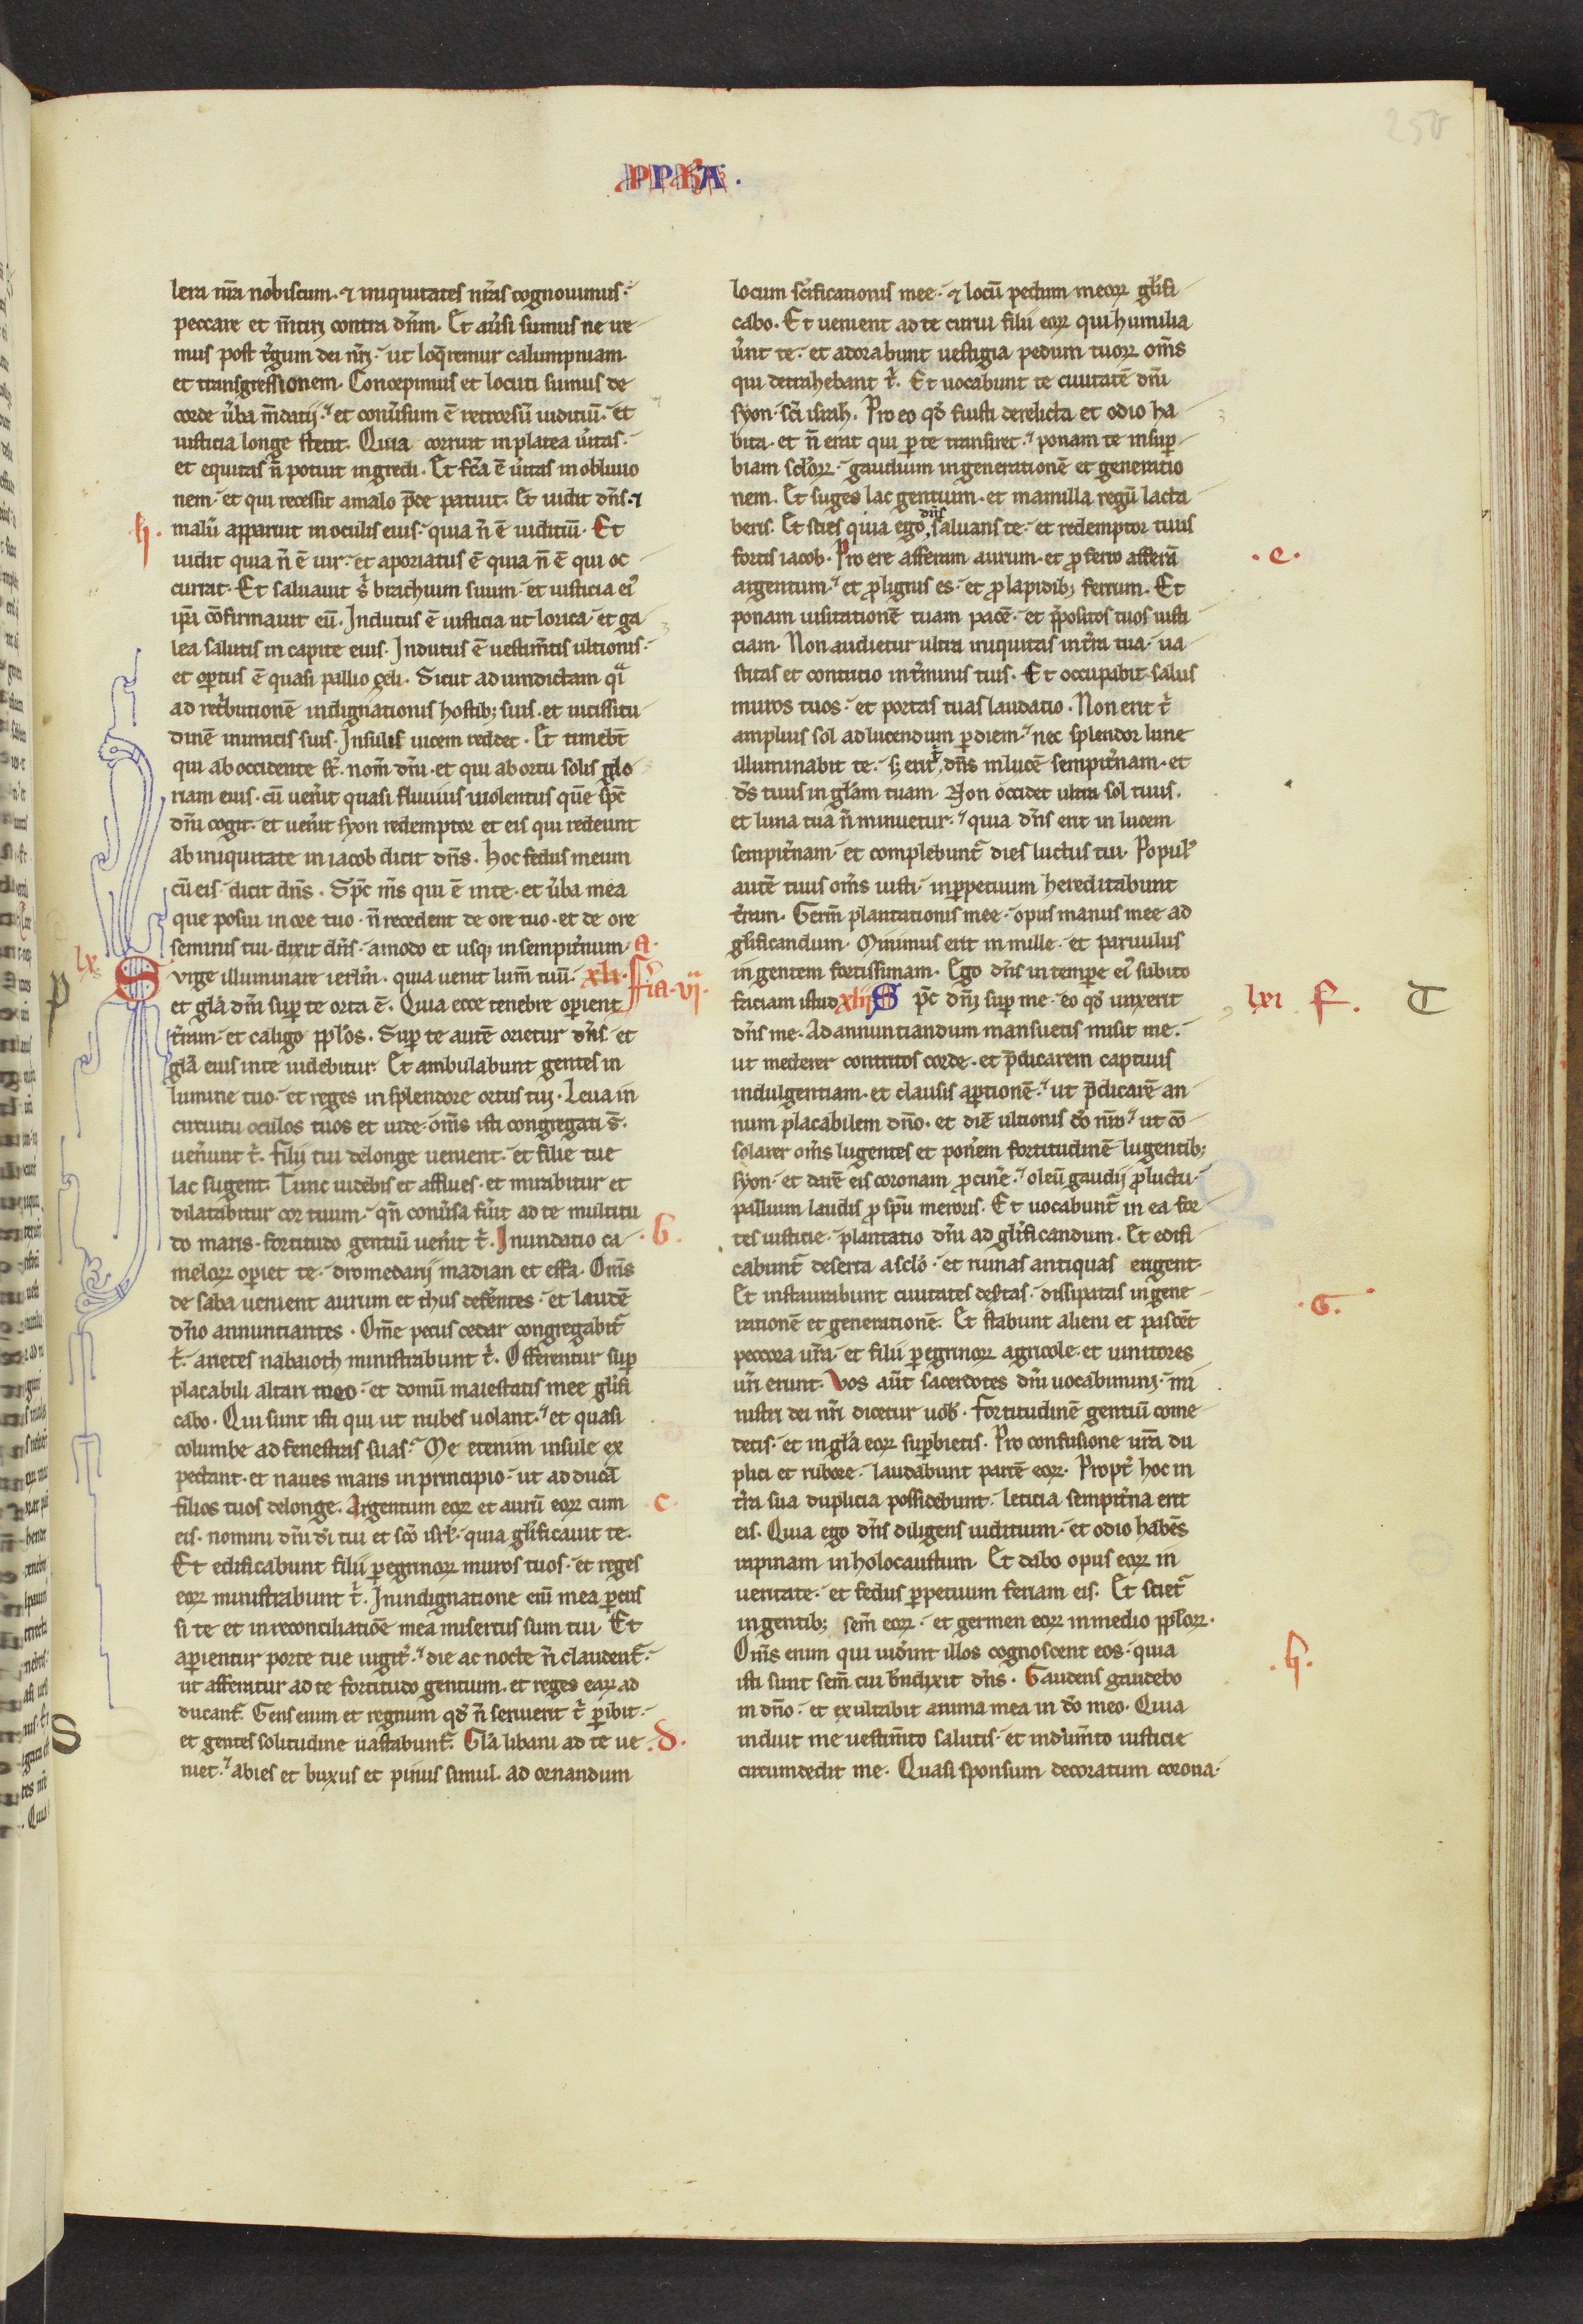 250
PPHA.
lera nr̄a nobiscum. ⁊ iniquitates nr̄as cognouimus.
peccare et m̄tiri contra dn̄m. Et au̓si sumus ne ire
mus post t̓gum dei nr̄i. ut loq̄remur calumpniam
et transgressionem. Concepimus et locuti sumus de
corde u̓ba m̄datii. et conu̓sum ē retrorsū iudiciū. et
iusticia longe stetit. Quia corruit in platea u̓itas.
et equitas n̄ potuit ingredi. Et fc̄a ē u̓itas in obliuio
nem. et qui recessit a malo p̄de patuit. Et uidit dn̄s. ⁊
h. malū apparuit in oculis eius. quia n̄ ē iudiciū. Et
uidit quia n̄ ē uir. et aporiatus ē quia n̄ ē qui oc
currat. Et saluauit s̓ brachium suum. et iusticia ei᾽
ip̄a cōfirmauit eū. Indutus ē iusticia ut lorica. et ga
lea salutis in capite eius. Indutus ē uestim̄tis ultionis.
et op̄tus ē quasi pallio zeli. Sicut ad uindictam qͣ
ad ret̓butionē indignationis hostib; suis. et uicissitu
dinē inimicis suis. Insulis uicem reddet. Et timebt̄
qui ab occidente st̄. nom̄ dn̄i. et qui ab ortu solis glo
riam eius. cū uen̓it quasi fluuius uiolentus quē sp̄c
dn̄i cogit. et uen̓it syon redemptor et eis qui redeunt
ab iniquitate in iacob dicit dn̄s. hoc fedus meum
cū eis. dicit dn̄s. Sp̄c m̄s qui ē in te. et u̓ba mea
que posui in ore tuo. n̄ recedent de ore tuo. et de ore
seminis tui. dixit dn̄s. amodo et usq; in sempit̓num. a.
lx. Surge illuminare ierl̄m. quia uenit lum̄ tuū. xli. fr̄ia. vi.
et gl̄a dn̄i sup̄ te orta ē. Quia ecce tenebre op̄ient
t̓ram. et caligo pp̄los. Sup̄ te autē orietur dn̄s. et
gl̄a eius in te uidebitur. Et ambulabunt gentes in
lumine tuo. et reges in splendore ortus tui. Leua in
circuitu oculos tuos et uide. om̄s isti congregati s̄.
uen̓unt t̓. filii tui de longe uenient. et filie tue
lac sugent. Tunc uidebis et afflues. et mirabitur et
dilatabitur cor tuum. qn̄ conu̓sa fu̓it ad te multitu
do maris. fortitudo gentiū uen̓it t̓. Inundatio ca b.
meloꝝ op̄iet te. dromedarii madian et effa. Om̄s
de saba uenient aurum et thus defe̓ntes. et laudē
dn̄o annuntiantes. Om̄e pecus cedar congregabit᷑
t̓. arietes nabaioth ministrabunt t̓. Offerentur sup̄
placabili altari meo. et domū maiestatis mee gl̄ifi
cabo. Qui sunt isti qui ut nubes uolant. et quasi
columbe ad fenestras suas. Me etenim insule ex
pectant. et naues maris in principio. ut adducā
filios tuos de longe. Argentum eoꝝ et aurū eoꝝ cum c
eis. nomini dn̄i di̓ tui et sc̄o isrl̄. quia gl̄ificauit te.
Et edificabunt filii p̄egrinoꝝ muros tuos. et reges
eoꝝ ministrabunt t̓. In indignatione eni̅ mea p̄cus
si te et in reconciliatiōe mea misertus sum tui. Et
ap̄ientur porte tue iugit̓. die ac nocte n̄ claudent᷑.
ut afferatur ad te fortitudo gentium. et reges eaꝝ ad
ducant᷑. Gens enim et regnum qd̓ n̄ seruierit t̓ p̄ibit.
et gentes solitudine uastabunt᷑. Gl̄a libani ad te ue d.
niet. abies et buxus et pinus simul. ad ornandum
P
S
locum sc̄ificationis mee. ⁊ locū pedum meoꝝ gl̄ifi
cabo. Et uenient ad te curui filii eoꝝ qui humilia
u̓nt te. et adorabunt uestigia pedum tuoꝝ om̄s
qui detrahebant t̓. Et uocabunt te ciuitatē dn̄i
syon. sc̄i israh̄. Pro eo qd̓ fuisti derelicta et odio ha
bita. et n̄ erat qui p̄ te transiret. ponam te in sup̄
biam scl̓oꝝ. gaudium in generationē et generatio
nem. Et suges lac gentium. et mamilla regū lacta
beris. Et scies quia ego dn̄s saluans te. et redemptor tuus
fortis iacob. Pro ere afferam aurum. et p̄ ferro afferā .e.
argentum. et p̄ lignis es. et p̄ lapidib; ferrum. Et
ponam uisitationē tuam pacē. et p̄positos tuos iusti
ciam. Non audietur ultra iniquitas in t̓ra tua. ua
stitas et contritio in t̓minis tuis. Et occupabit salus
muros tuos. et portas tuas laudatio. Non erit t̓
amplius sol ad lucendum p̄ diem. nec splendor lune
illuminabit te. s; erit t̓ dn̄s in lucē sempit̓nam. et
d̄s tuus in gl̄am tuam. Non occidet ultra sol tuus.
et luna tua n̄ minuetur. quia dn̄s erit in lucem
sempit̓nam. et complebunt᷑ dies luctus tui. Popul᾽
autē tuus om̄s iusti. in p̄petuum hereditabunt
t̓ram. Germ̄ plantationis mee. opus manus mee ad
gl̄ificandum. Minimus erit in mille. et paruulus
in gentem fortissimam. Ego dn̄s in tempe ei᾽ subito
faciam istud xlii Sp̄c dn̄i sup̄ me. eo qd̓ unxerit lxi f. T
dn̄s me. Ad annuntiandum mansuetis misit me.
ut mederer contritos corde. et p̄dicarem captiuis
indulgentiam. et clausis ap̄tionē. ut p̄dicarē an
num placabilem dn̄o. et diē ultionis dō nr̄o. ut cō
solarer om̄s lugentes et pon̓em fortitudinē lugentib;
syon. et darē eis coronam p̄ cine̓. oleū gaudii p̄ luctu.
pallium laudis p̄ sp̄u meroris. Et uocabunt᷑ in ea for
tes iusticie. plantatio dn̄i ad gl̄ificandum. Et edifi
cabunt᷑ deserta a scl̓o. et ruinas antiquas erigent.
Et instaurabunt ciuitates des̓tas. dissipatas in gene .G.
rationē et generationē. Et stabunt alieni et pascēt
peccora ur̄a. et filii p̄egrinoꝝ agricole et uinitores
ur̄i erunt. Vos aūt sacerdotes dn̄i uocabimini. mi
nistri dei nr̄i dicetur uob̓. fortitudinē gentiū come
detis. et in gl̄a eoꝝ sup̄bietis. Pro confusione ur̄a du
plici et rubore. laudabunt partē eoꝝ. Propt̓ hoc in
t̓ra sua duplicia possidebunt. leticia sempit̓na erit
eis. Quia ego dn̄s diligens iudicium. et odio habēs
rapinam in holocaustum. Et dabo opus eoꝝ in
ueritate. et fedus p̄petuum feriam eis. Et sciet᷑
in gentib; sem̄ eoꝝ. et germen eoꝝ in medio pp̄loꝝ.
Om̄s enim qui uid̓int illos cognoscent eos. quia .h.
isti sunt sem̄ cui bn̄dixit dn̄s. Gaudens gaudebo
in dn̄o. et exultabit anima mea in dō meo. Quia
induit me uestim̄to salutis. et indum̄to iusticie
circumdedit me. Quasi sponsum decoratum corona.